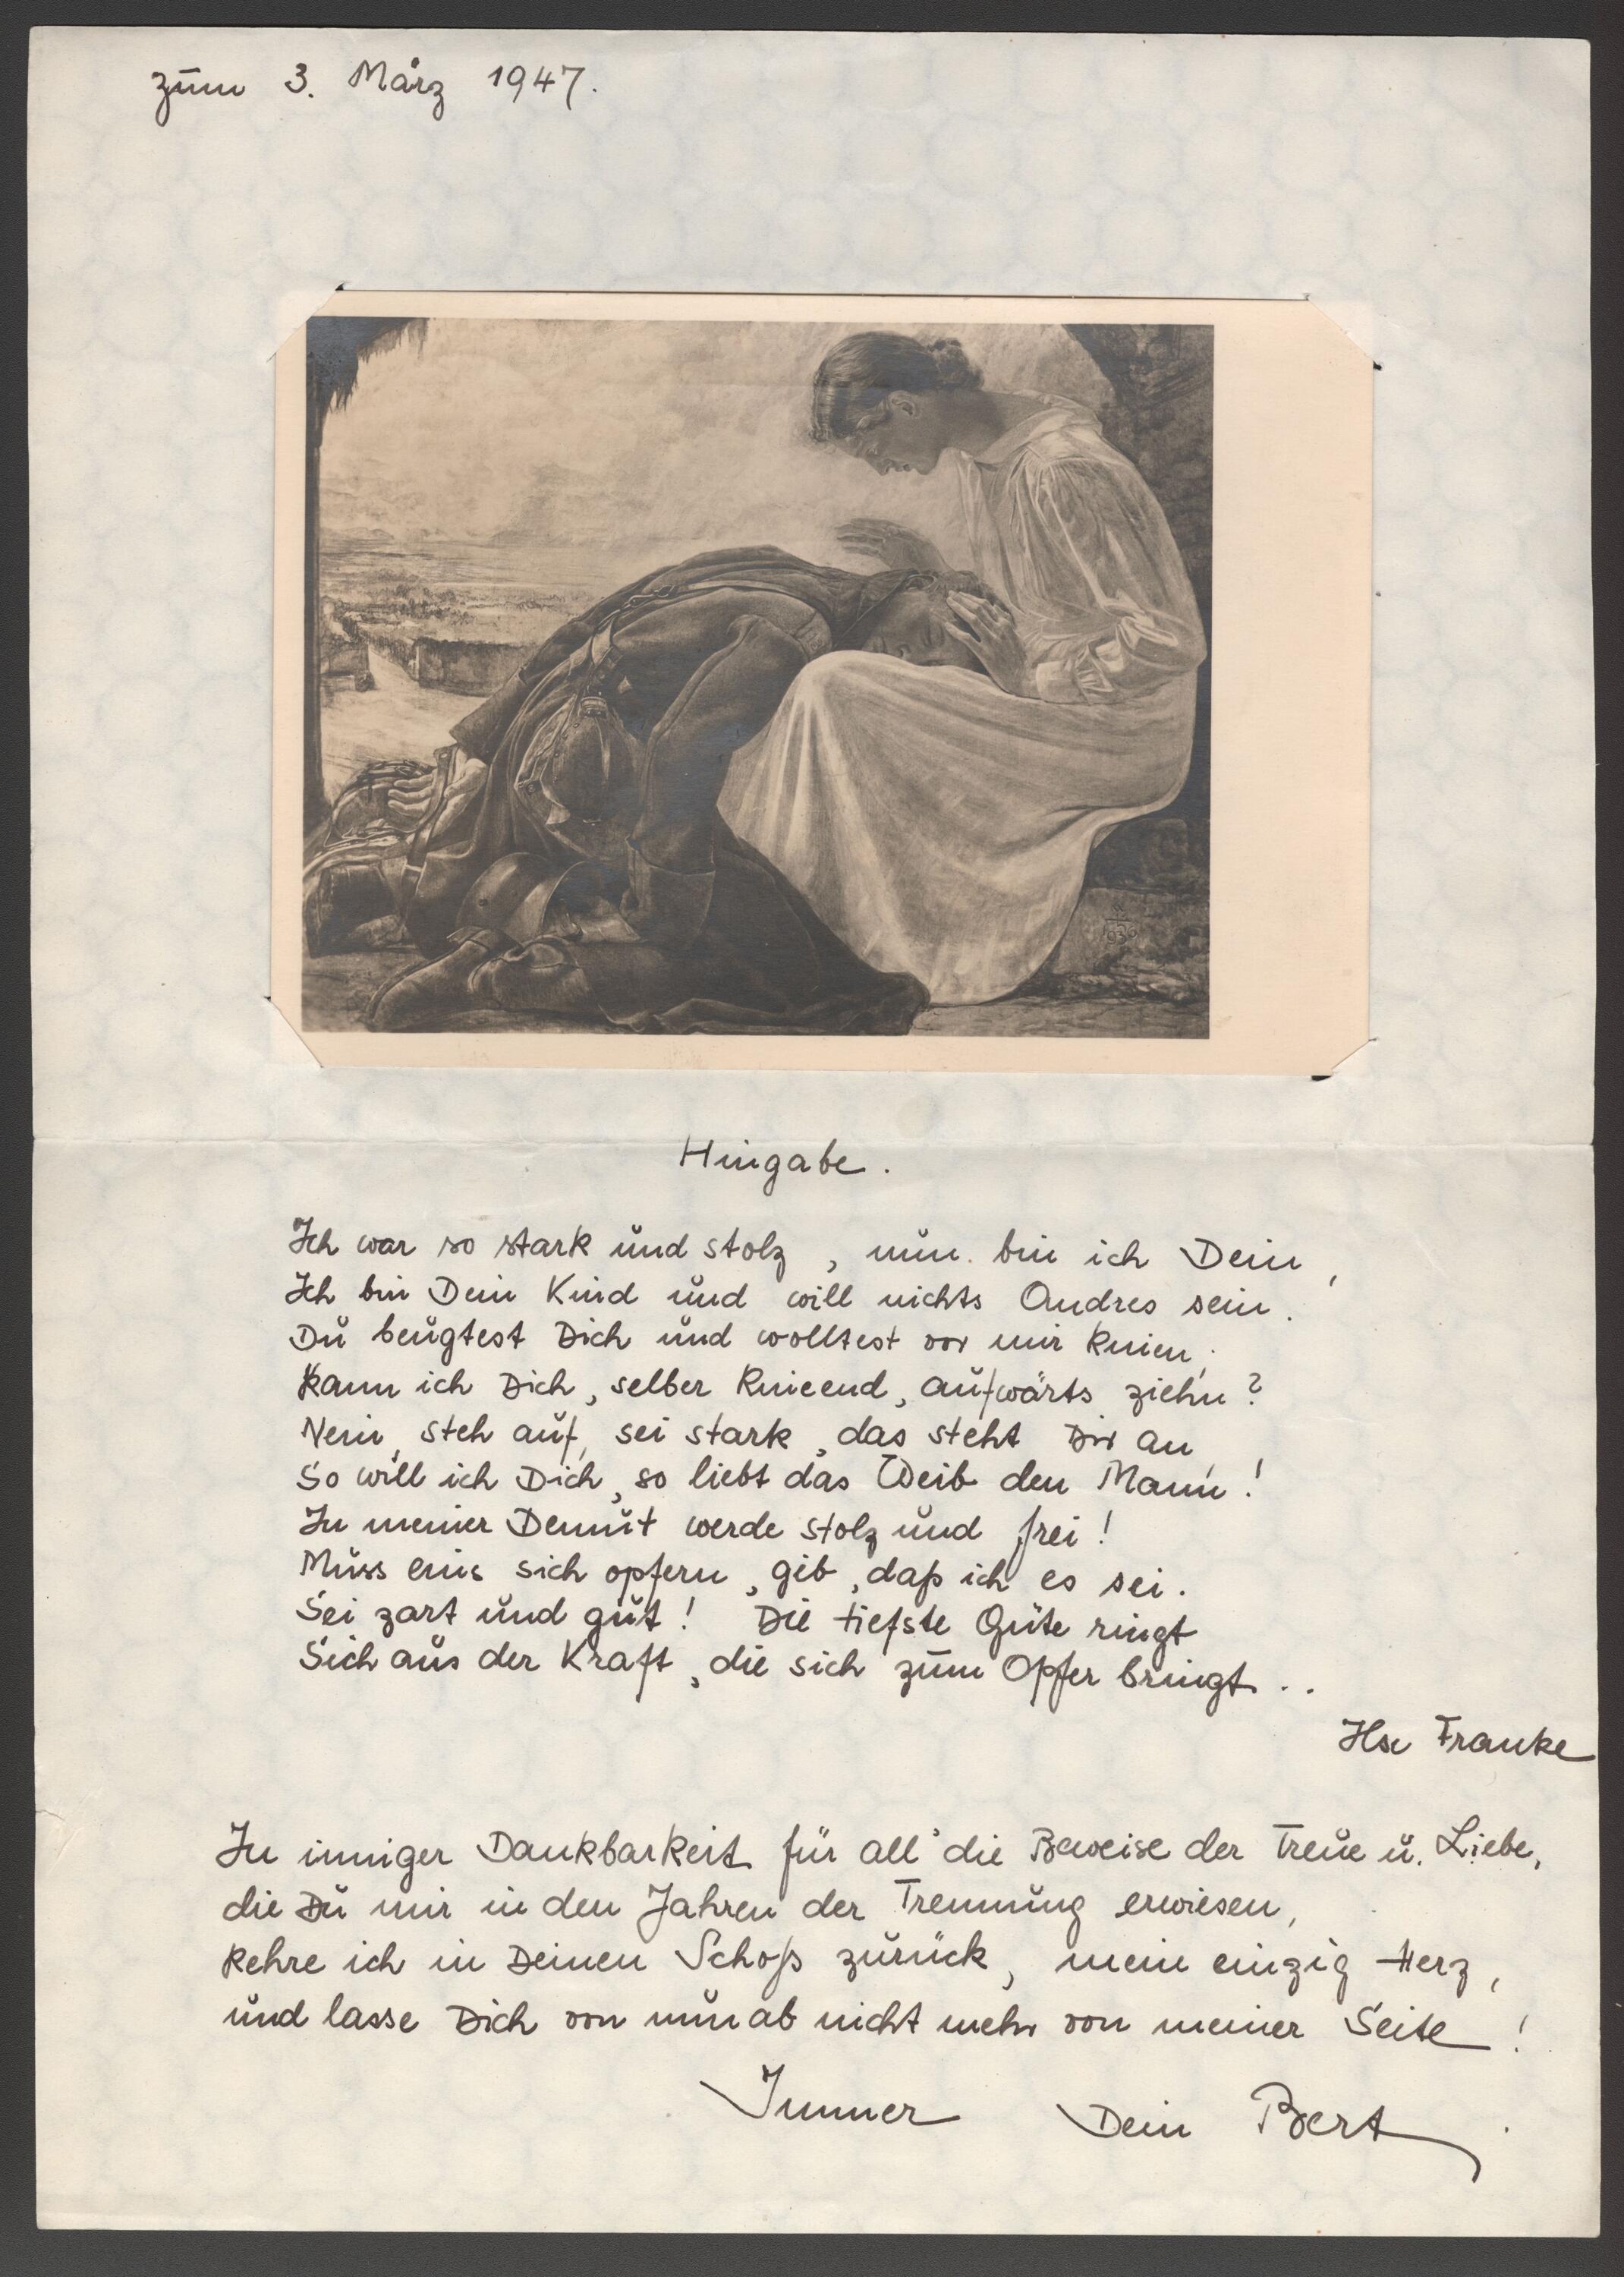 zum 3. März 1947.
Hingabe.
Ich war so stark und stolz, nun bin ich Dein,
Ich bin Dein Kind und will nichts Andres sein.
Du beugtest Dich und wolltest vor mir knien;
Kann ich Dich, selber knieend, aufwärts ziehn?
Nein, steh auf, sei stark, das steht Dir an,
So will ich Dich, so liebt das Weib den Mann!
In meiner Demut werde stolz und frei!
Muss eins sich opfern, gib, daß ich es sei.
Sei zart und gut! Die tiefste Güte ringt
Sich aus der Kraft, die sich zum Opfer bringt..
Ilse Franke
In inniger Dankbarkeit für all' die Beweise der Treue u. Liebe,
die Du mir in den Jahren der Trennung erwiesen,
kehre ich in Deinen Schoß zurück, mein einzig Herz,
und lasse Dich von nun ab nicht mehr von meiner Seite!
Immer Dein Bert